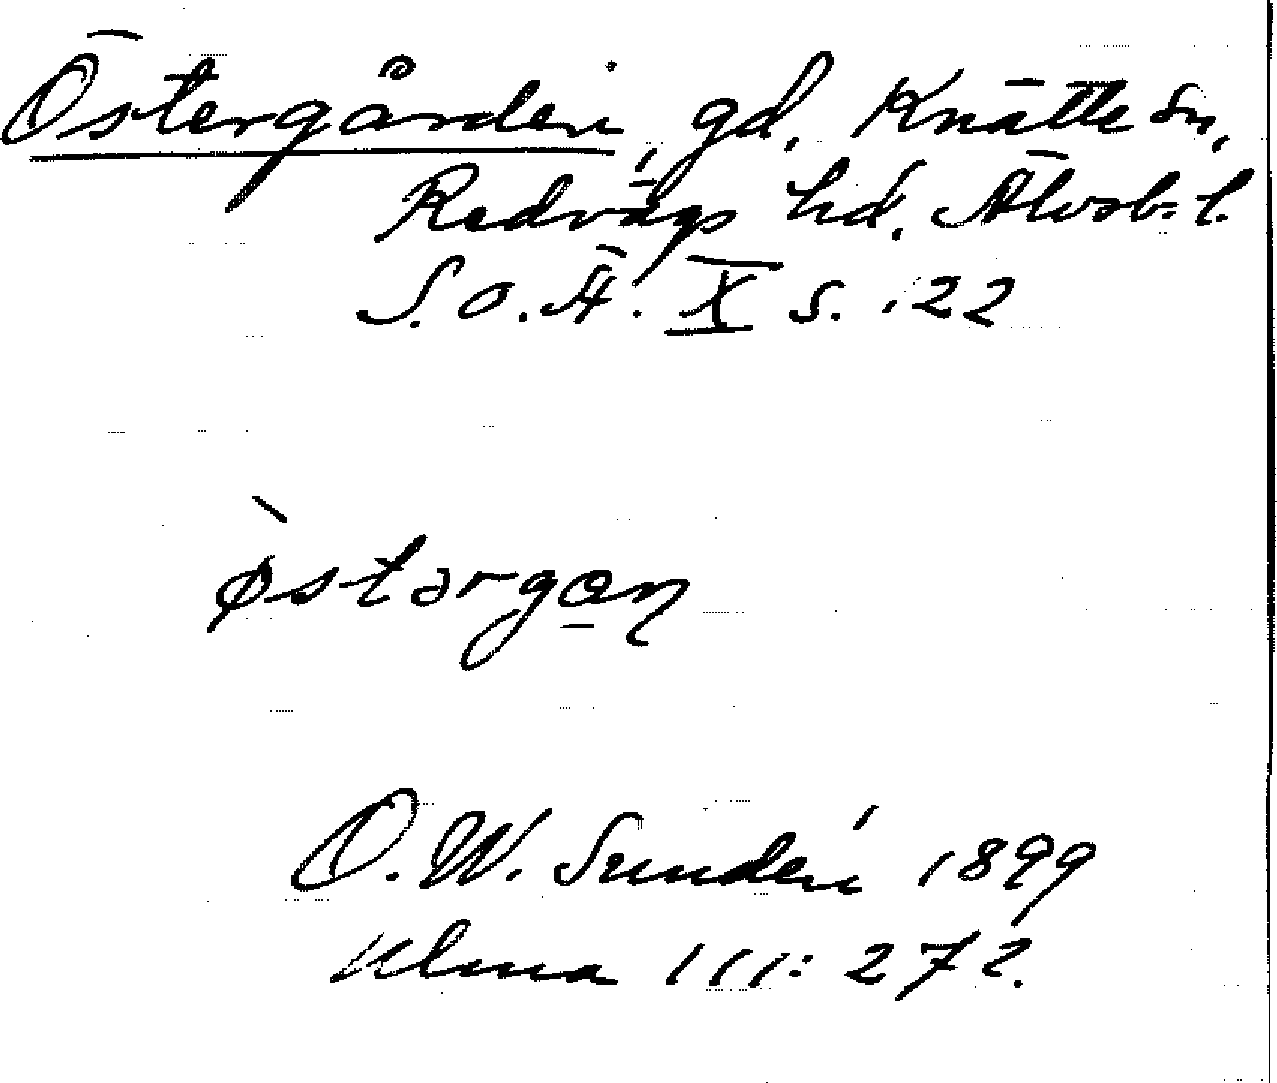 Östergården, gd. Knätte sn,
Redvägs hd. Älvsb. l.
S. O. Ä. X s. 122
ø̀stərgan̥
O. W. Sundén 1899
Ulma 111:272.